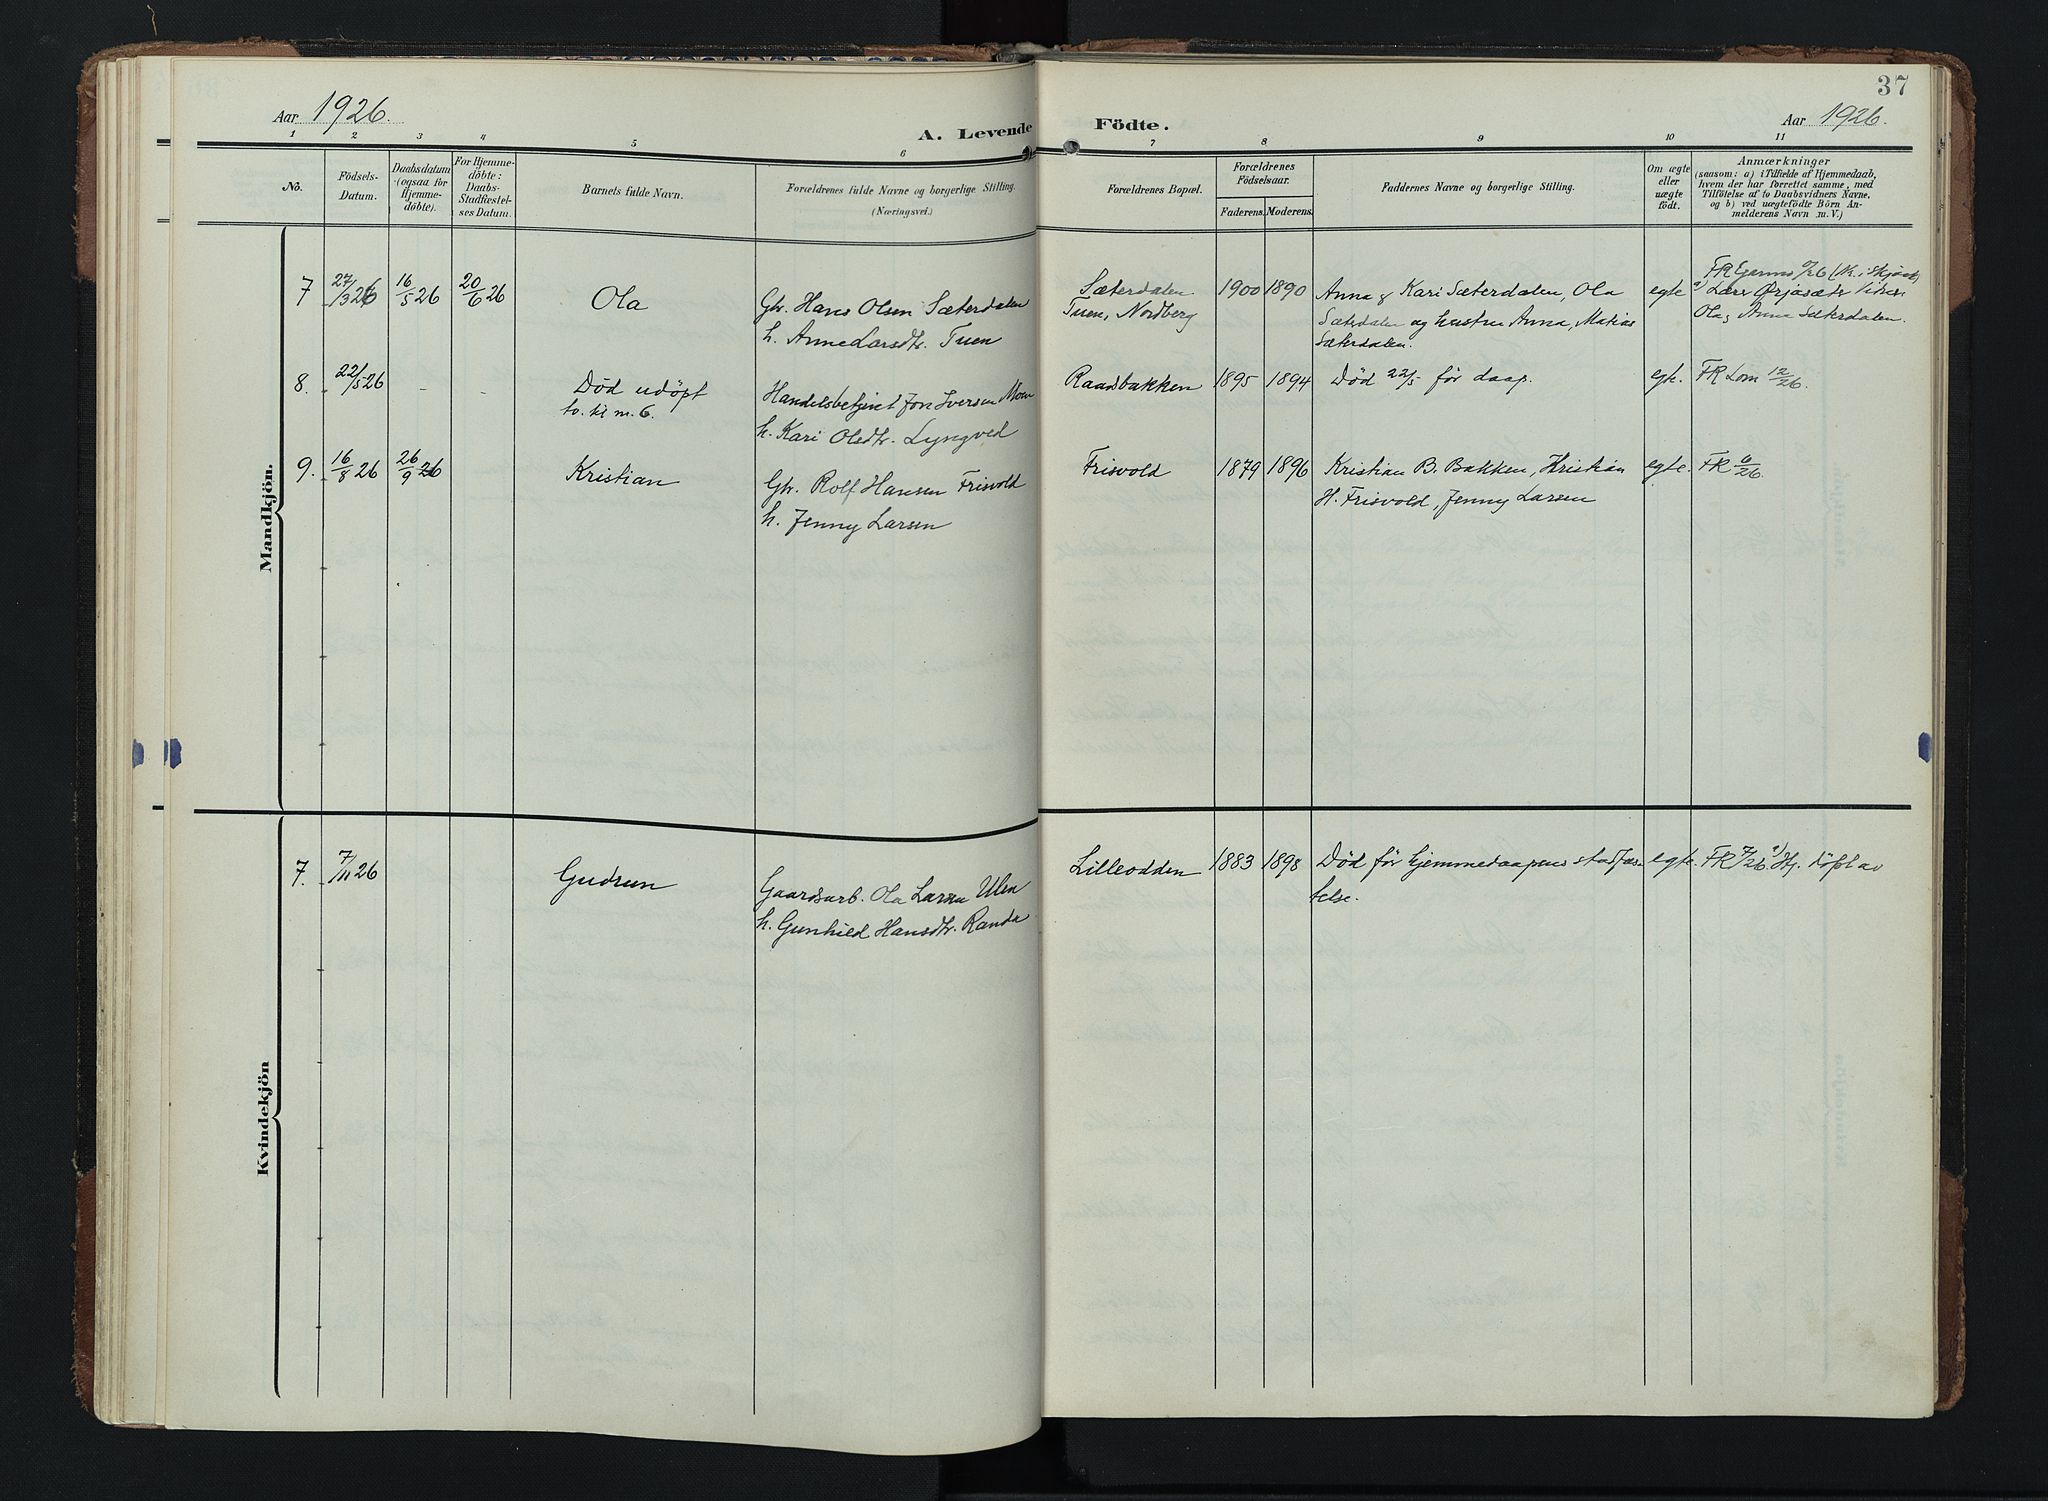 37
Aar 1926.
A. Levende Födte.
Aar 1926.
1 2 3 4 5 6 7 8 9 10 11
No.
Födsels-
Datum.
Daabsdatum
(ogsaa for
Hjemme-
döbte).
For Hjemme-
döbte:
Daabs-
Stadfæstel-
ses Datum.
Barnets fulde Navn.
Forældrenes fulde Navne og borgerlige Stilling.
(Næringsvei.)
Forældrenes Bopæl.
Forældrenes
Födselsaar.
Faderens. Moderens.
Faddernes Navne og borgerlige Stilling.
Om ægte
eller
uægte
födt.
Anmærkninger
(saasom: a) i Tilfælde af Hjemmedaab,
hvem der har forrettet samme, med
Tilföielse af to Daabsvidners Navne,
og b) ved uægtefödte Börn An-
melderens Navn m. V.)
Mandkjön.
7 27/3 26 16/5 26 20/6 26 Ola
Gbr. Hans Olsen Sæterdalen
h. Anne Larsdtr. Tuen
Sæterdalen
Tuen, Nordberg
1900 1890
Anna & Kari Sæterdalen, Ola
Sæterdalen og hustru Anna, Matias
Sæterdalen.
egte
FR Garmo
Lærer Ørjasæter Vidner
Ola & Anna Sæterdalen.
8. 22/5 26 - -
Død udöpt
to. kl m. 6.
Handelsbetjent Jon Iversen Moen
h. Kari Olsdtr. Lyngved
Raadsbakken 1895 1894 Død 22/5 før daap. egte. FR Lom 12/26.
9. 16/8 26 26/9 26 Kristian
Gbr. Rolf Hansen Frisvold
h. Jenny Larsen
Frisvold 1879 1896
Kristian B. Bakken, Kristian
H. Frisvold, Jenny Larsen
egte. FR 6/26.
Kvindekjön
7. 7/11 26 Gudrun
Gaardsarb. Ola Larsen Ulen
h. Gunhild Hansdtr. Randa
Lilleodden 1883 1898
Død før hjemmedaapens stadfæs-
telse.
egte. FR 7/26. a) Hj. døpt av